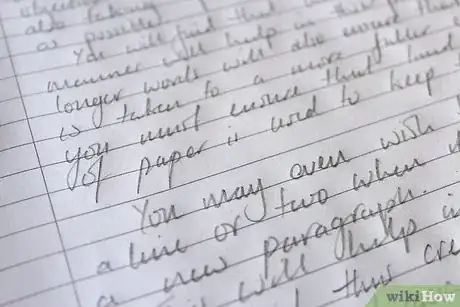 also taking
as possible
You will find that
manner will help in th
longer words will also ensure tha
is taken to a more fuller
you must ensure that lined
of paper is used to keep
You may even wish
a line or two when
a new paragraph.
will help i
this cre
wikiHow